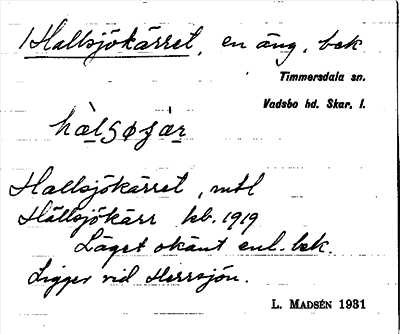 /Hallsjökärret, en äng, bek
Timmersdala sn.
Vadsbo hd. Skar. l.
hàlsøʒàr
Hallsjökärret, mtl
Hällsjökärr kb. 1919
Läget okänt enl. bek.
Ligger vid Herrsjön.
L. MADSÉN 1931